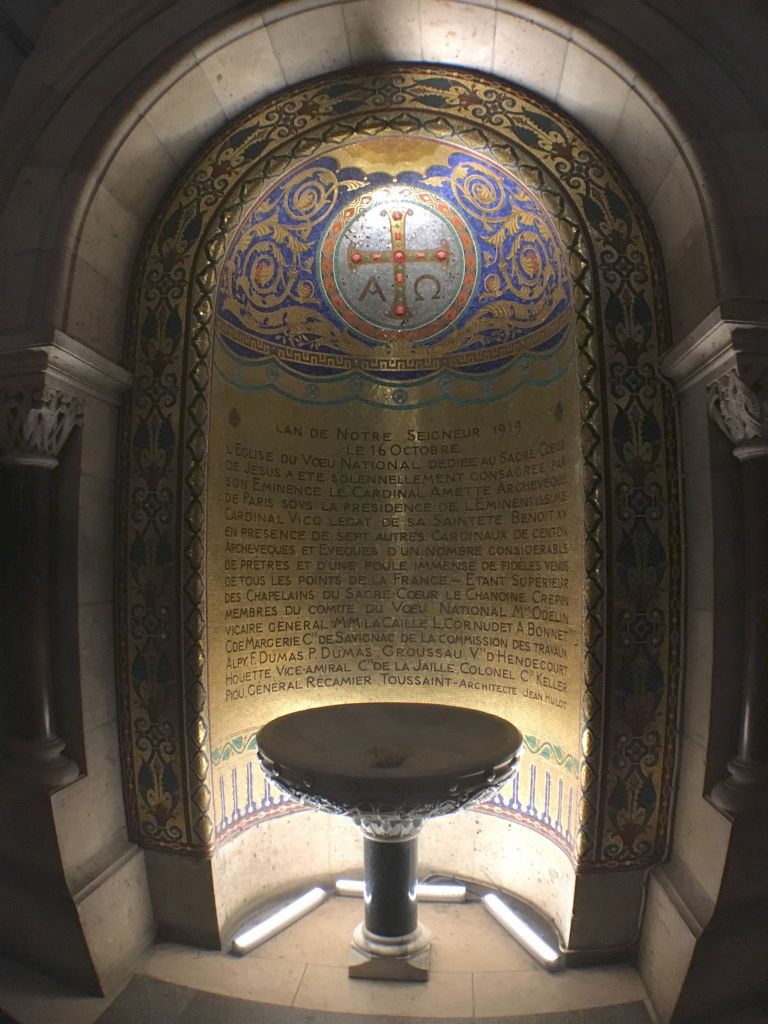 Α Ω
LAN DE NOTRE SEIGNEUR 1919
LE 16 OCTOBRE
L'EGLISE DU VŒU NATIONAL DEDIEE AU SACRE-CŒUR
DE JESUS A ETE SOLENNELLEMENT CONSACREE PAR
SON EMINENCE LE CARDINAL AMETTE ARCHEVEQUE
DE PARIS SOVS LA PRESIDENCE DE L'EMINENTISSIME
CARDINAL VICO LEGAT DE SA SAINTETE BENOIT XV
EN PRESENCE DE SEPT AUTRES CARDINAUX DE CENT-DIX
ARCHEVEQUES ET EVEQUES D'UN NOMBRE CONSIDERABLE
DE PRETRES ET D'UNE FOULE IMMENSE DE FIDELES VENUS
DE TOUS LES POINTS DE LA FRANCE – ETANT SUPERIEUR
DES CHAPELAINS DU SACRE-CŒUR LE CHANOINE CREPIN
MEMBRES DU COMITE DU VŒU NATIONAL Mgr ODELIN
VICAIRE GENERAL - MM. LA CAILLE L. CORNUDET A BONNET
C DE MARGERIE Cte DE SAVIGNAC DE LA COMMISSION DES TRAVAUX
ALPY. F. DUMAS. P. DUMAS. GROUSSAU. Vte D'HENDECOURT
HOUETTE VICE-AMIRAL Cte DE LA JAILLE. COLONEL Cte KELLER
PIOU. GENERAL RECAMIER. TOUSSAINT - ARCHITECTE JEAN HULOT